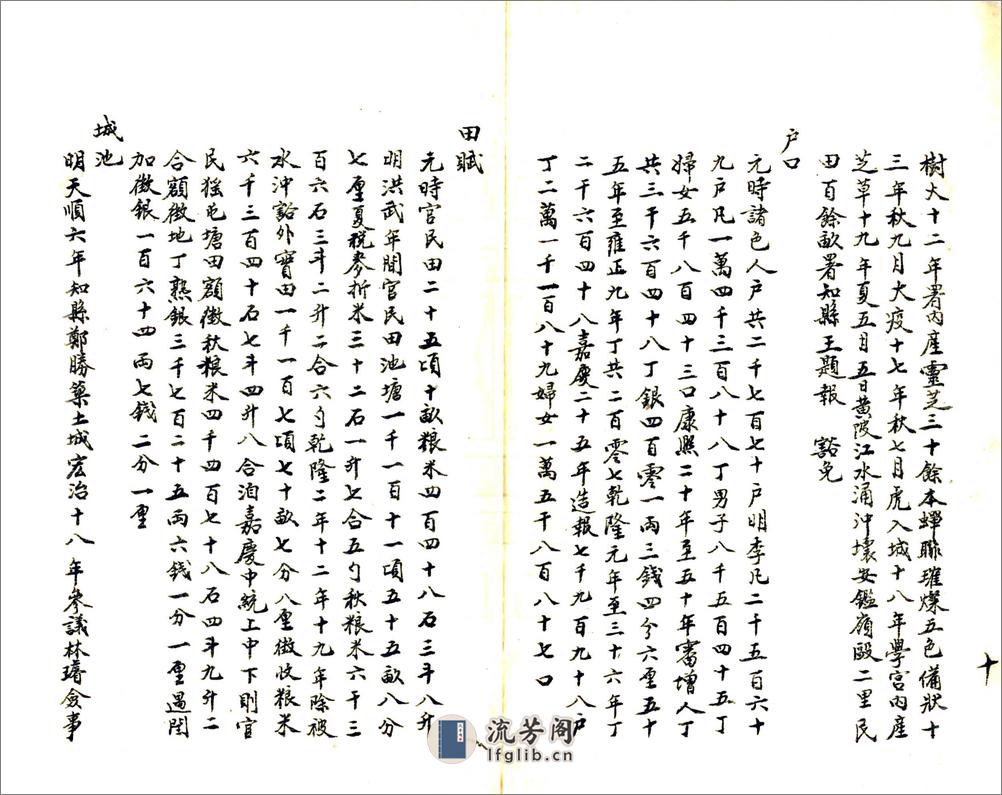 樹大十二年署內產靈芝三十餘本蟬聯璀燦五色備狀十
三年秋九月大疫十七年秋七月虎入城十八年學宮內產
芝草十九年夏五月五日黃陂江水涌沖壞安鑑嶺毆二里民
田百餘畝署知縣王題報 豁免
戶口
元時諸色人戶共二千七百七十戶明季凡二千五百六十
九戶凡一萬四千三百八十八丁男子八千五百四十五丁
婦女五千八百四十三口康熙二十年至五十年審增人丁
共三千六百四十八丁銀四百零一兩三錢四分六厘五十
五年至雍正九年丁共二百零七乾隆元年至三十六年丁
二千六百四十八嘉慶二十五年造報七千九百九十八戶
丁二萬一千一百八十九婦女一萬五千八百八十七口
十
田賦
元時官民田二十五頃十畝粮米四百四十八石三斗八升
明洪武年間官民田池塘一千一百十一頃五十五畝八分
七厘夏稅麥折米三十二石一升七合五勺秋粮米六千三
百六石三斗二升二合六勺乾隆二年十二年十九年除被
水沖豁外實田一千一百七頃七十畝七分八厘徵收粮米
六千三百四十石七斗四升八合洎嘉慶中統上中下則官
民猺屯塘田額徵秋粮米四千四百七十八石四斗九升二
合額徵地丁熟銀三千七百二十五兩六錢一分一厘遇閏
加徵銀一百六十四兩七錢二分一厘
城池
明天順六年知縣鄭勝築土城宏治十八年參議林璿僉事
流芳阁
lfglib.cn